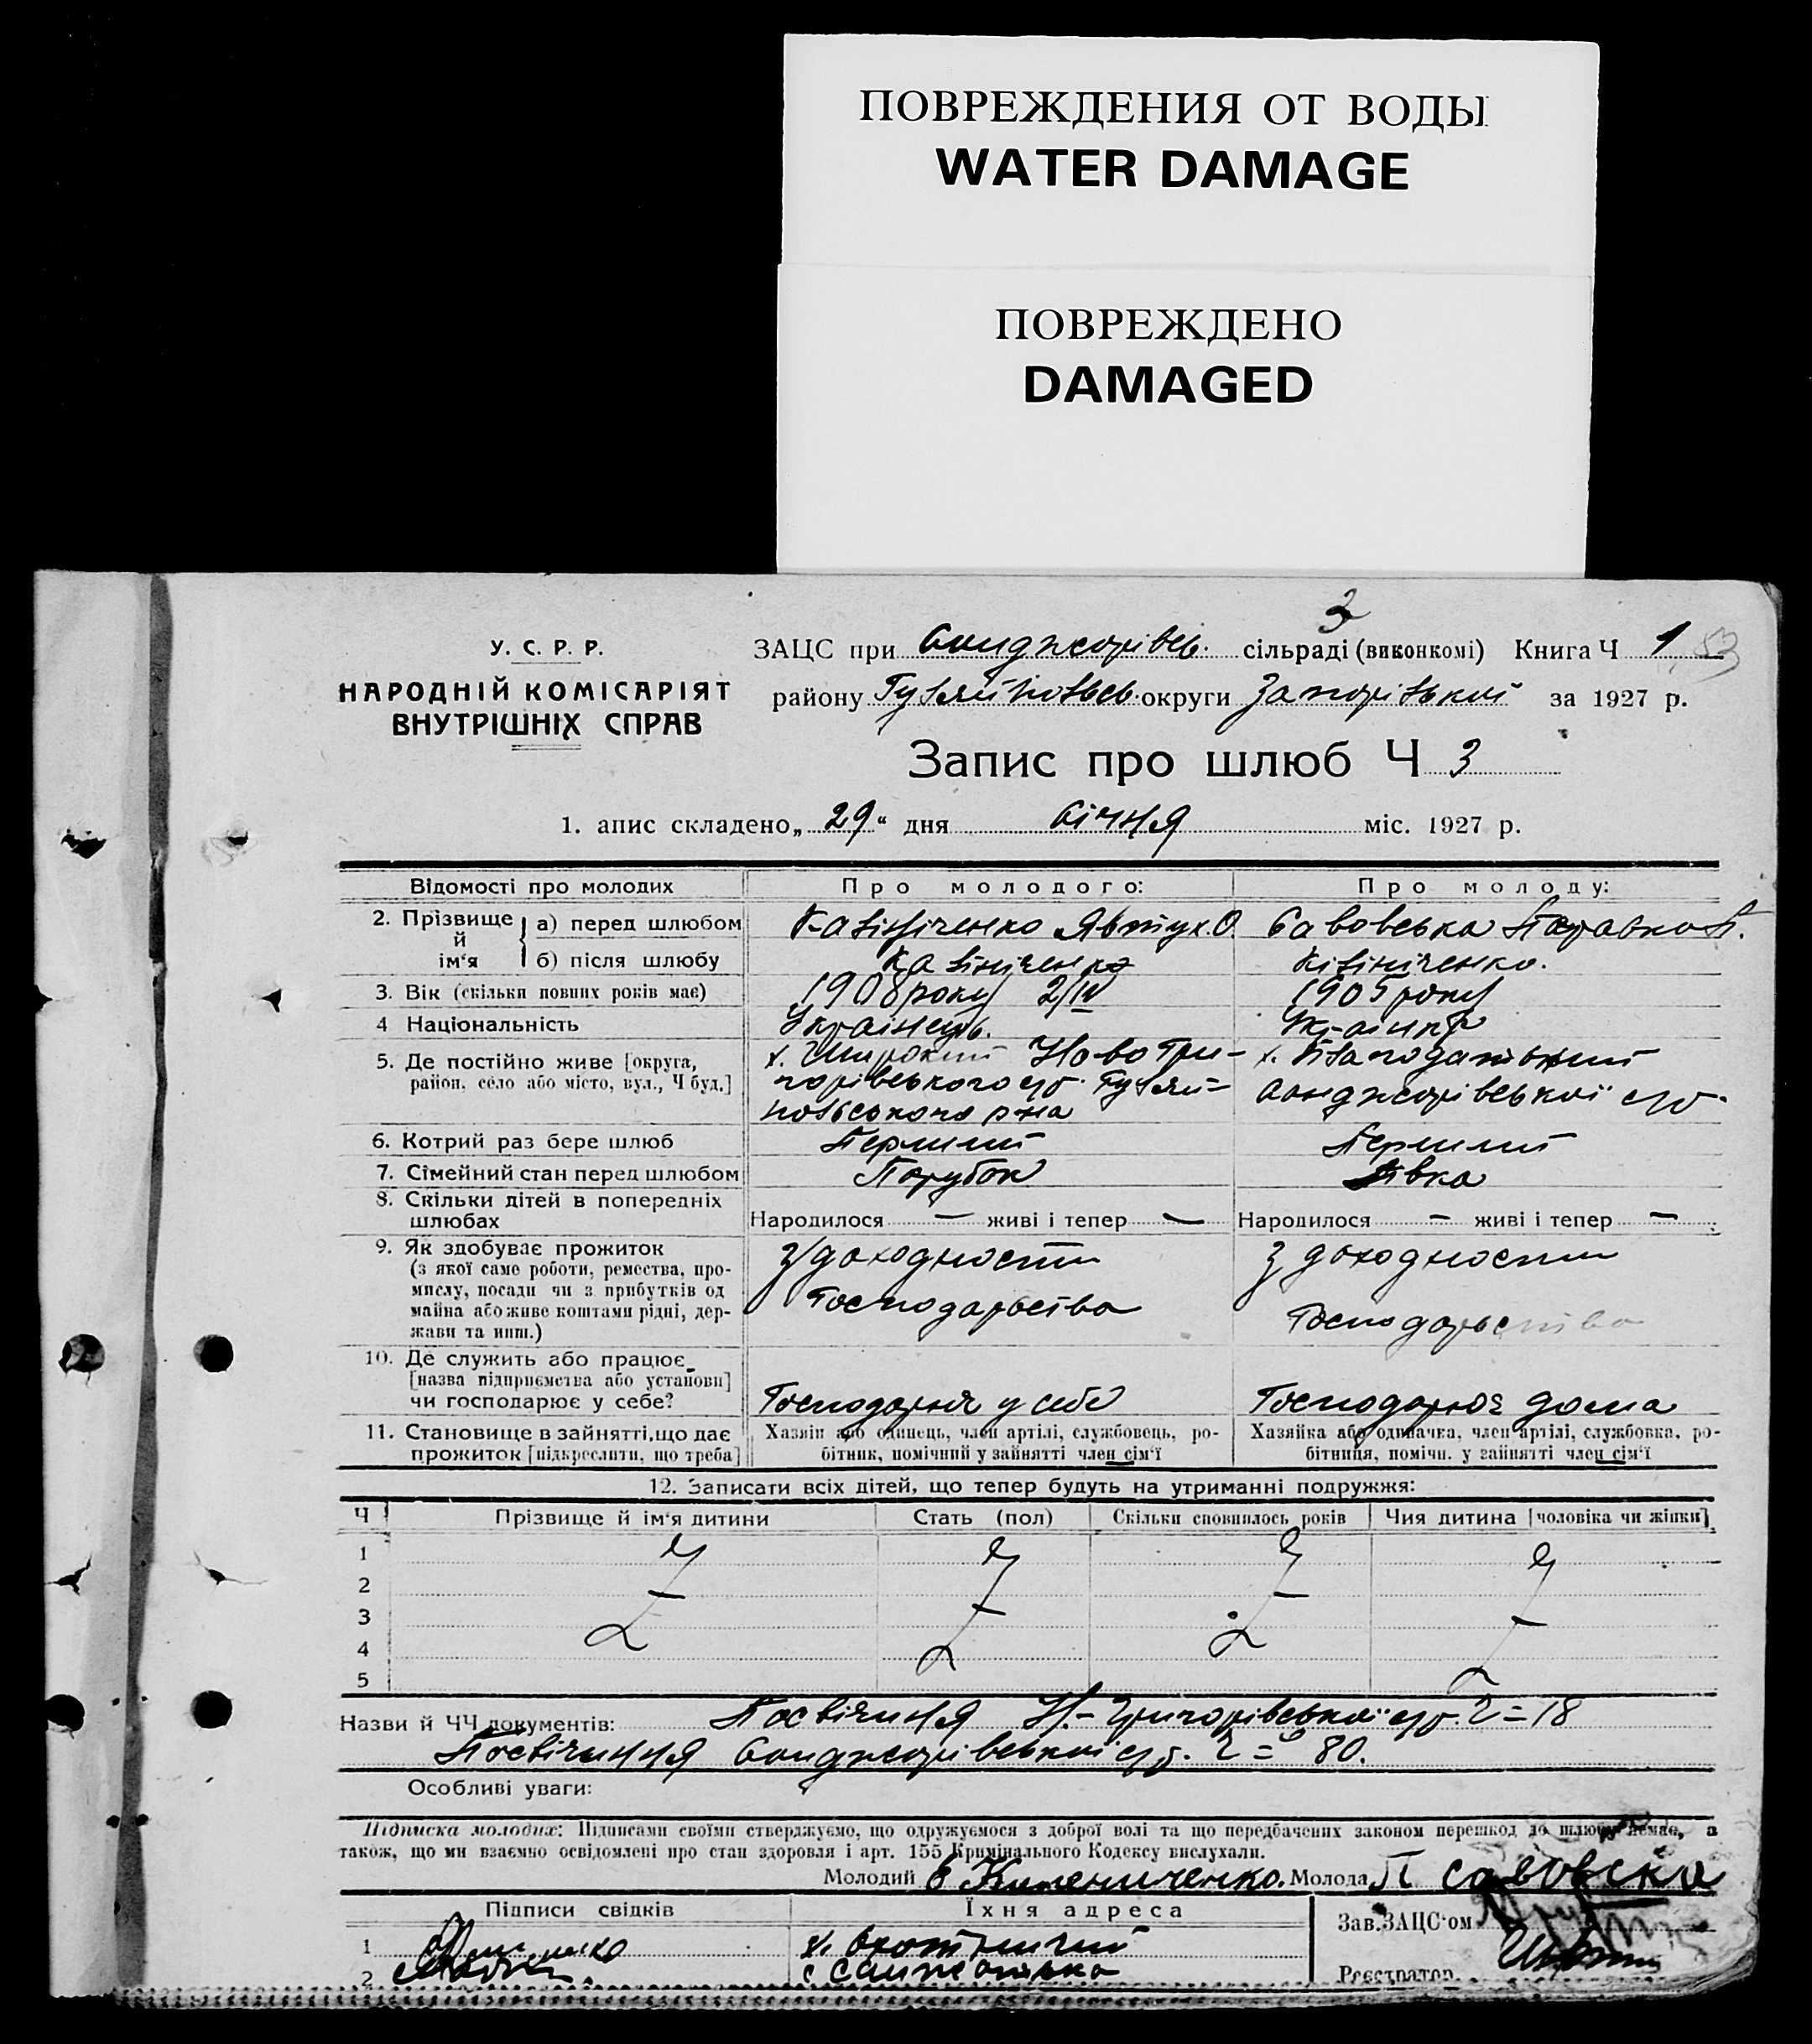 ПОВРЕЖДЕНИЯ ОТ ВОДЫ
WATER DAMAGE
ПОВРЕЖДЕНО
DAMAGED
3
У. С. Р. Р.
НАРОДНІЙ КОМІСАРІЯТ
ВНУТРІШНІХ СПРАВ
ЗАЦС при Санджарівсь. сільраді (виконкомі) Книга Ч 1 53
району Гуляйпольсь. округи Запорізької за 1927 р.
Запис про шлюб Ч 3
1. апис складено „ 29 “ дня січня міс. 1927 р.
Відомості про молодих
Про молодого:
Про молоду:
2. Прізвище й ім‘я
а) перед шлюбом
Явтух О.
Савовська Параска
б) після шлюбу
3. Вік (скільки повних років має)
1908 року 2/IV
1905 року
4 Національність
Українець.
Українка
5. Де постійно живе [округа,
район, село або місто, вул., Ч буд.]
х. Широкий Ново Гри-
горівського с/р. Гуляй-
польського р-на
х. Благодатний
Санджарівської с/р.
6. Котрий раз бере шлюб
Перший
Перший
7. Сімейний стан перед шлюбом
Парубок
Дівка
8. Скільки дітей в попередніх
шлюбах
Народилося — живі і тепер —
Народилося — живі і тепер —
9. Як здобуває прожиток
(з якої саме роботи, ремества, про-
мислу, посади чи з прибутків од
майна або живе коштами рідні, дер-
жави та инш.)
З доходности
Господарства
З доходности
Господарства
10. Де служить або працює
[назва підприємства або установи]
чи господарює у себе?
Господарює у себе
Господарює дома
11. Становище в зайнятті, що дає
прожиток [підкреслити, що треба]
Хазяїн або одинець, член артілі, службовець, ро-
бітник, помічний у зайнятті член сім‘ї
Хазяйка або одиначка, член артілі, службовка, ро-
бітниця, помічн. у зайнятті член сім‘ї
12. Записати всіх дітей, що тепер будуть на утриманні подружжя:
Ч
Прізвище й ім‘я дитини
Стать (пол)
Скільки сповнилось років
Чия дитина [чоловіка чи жінки]
1
2
3
4
5
Назви й ЧЧ документів: Посвічення Н.-Григорівської с/р. Ч = 18
Посвічення Санджарівської с/р. Ч = 80.
Особливі уваги:
Підписка молодих: Підписами своїми стверджуємо, що одружуємося з доброї волі та що передбачених законом перешкод до шлюбу немає, а
також, що ми взаємно освідомлені про стан здоровля і арт. 155 Кримінального Кодексу вислухали.
Молодий Молода П Савовска
Підписи свідків
Їхня адреса
Зав. ЗАЦС‘ом
1
х. Охотничий
2
с Санжаровка
Реєстратор